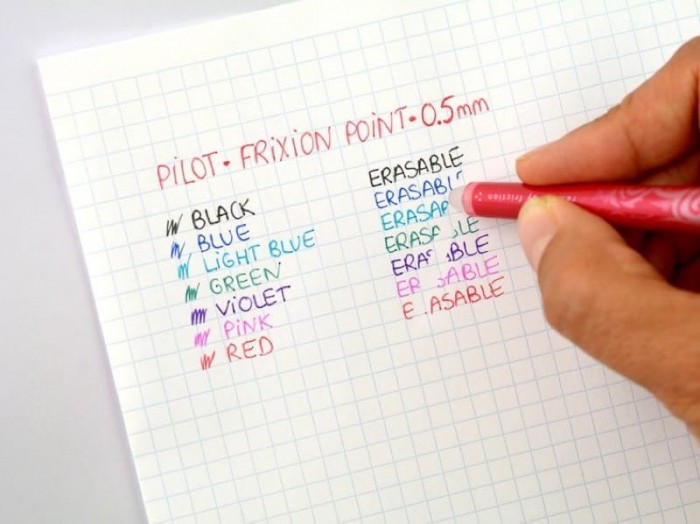 PILOT • FRIXION POINT • 0.5mm
BLACK
BLUE
LIGHT BLUE
GREEN
VIOLET
PINK
RED
ERASABLE
ERASABL
ERASA
ERASA LE
ERA BLE
ER ABLE
E ASABLE
by friction